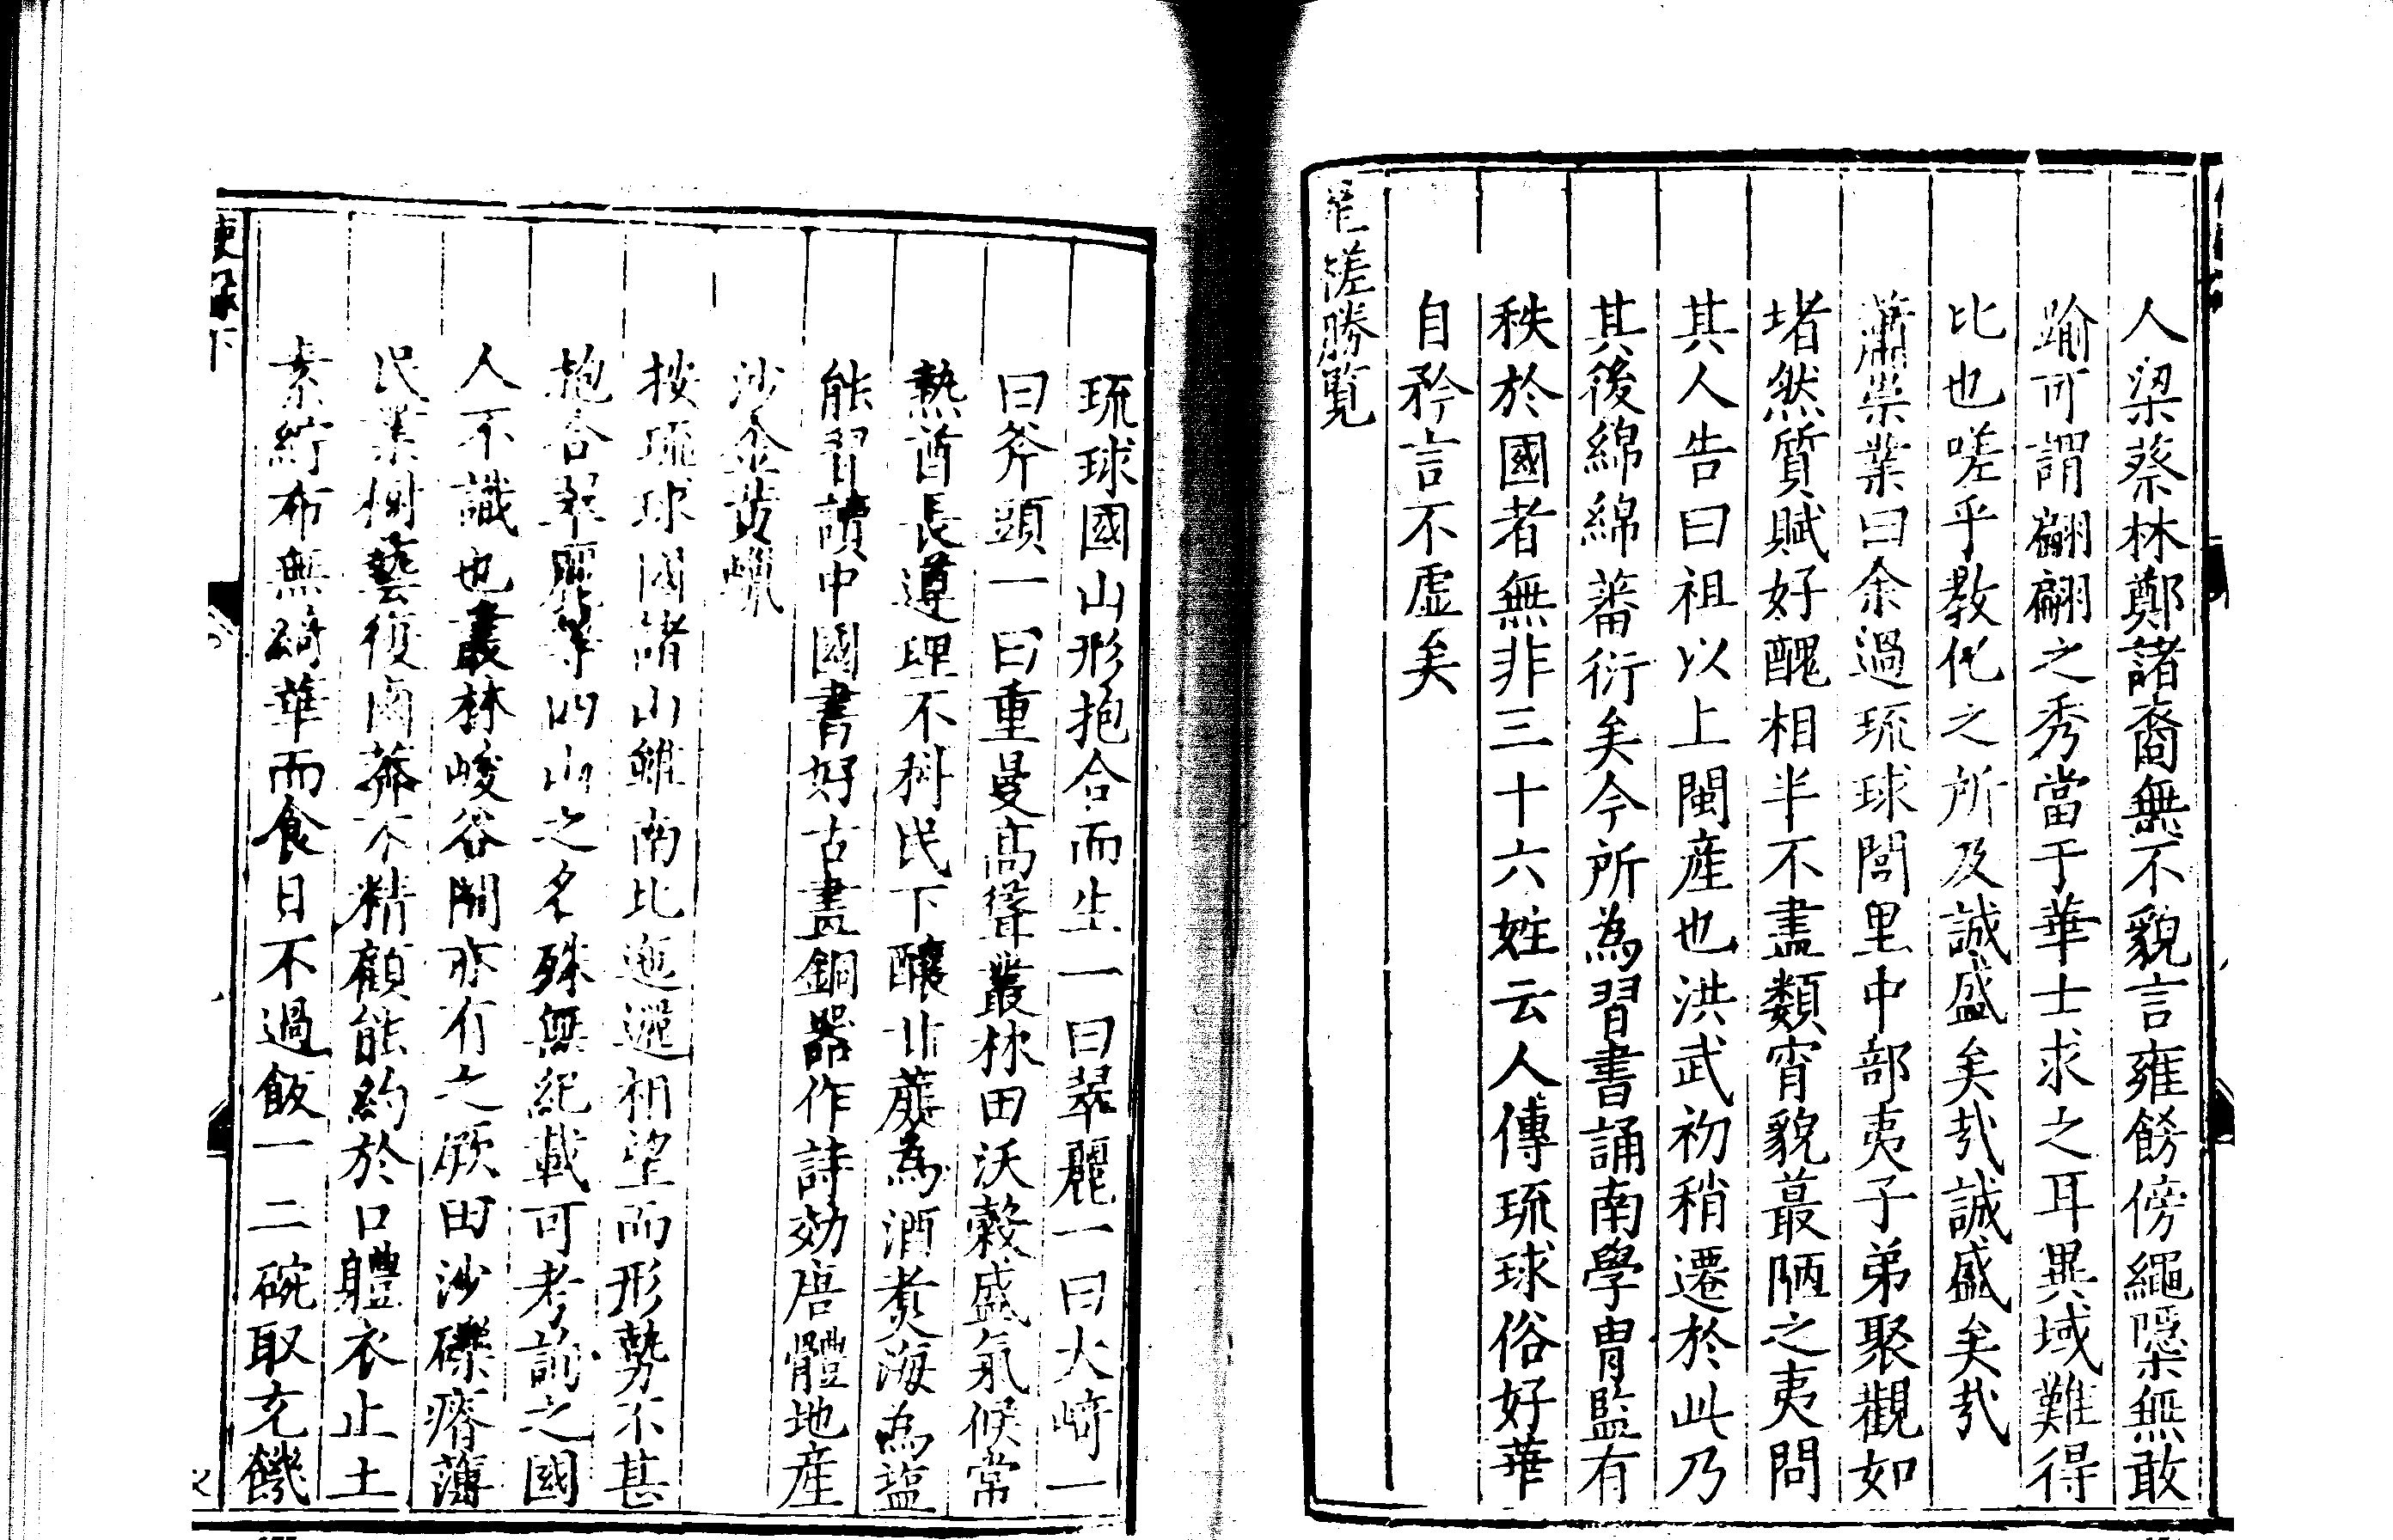 人梁蔡林鄭諸裔無不貌言雍餝傍繩隱無敢
踰可謂翩翩之秀當于華士求之耳異域難得
比也嗟乎教化之所及誠盛矣㢤誠盛矣㢤
蕭崇業曰余過琉球閭里中部夷子弟聚觀如
堵然質賦好醜相半不盡類宵貌蕞陋之夷問
其人告曰祖以上閩産也洪武初稍遷於此乃
其後綿綿蕃衍矣今所為習書誦南學冑監有
秩於國者無非三十六姓云人傳琉球俗好華
自矜言不虛矣
星槎勝覧
琉球國山形抱合而生一曰翠麗一曰大崎一
曰斧頭一曰重曼高聳叢林田沃榖盛氣候常
熱酋長遵理不科民下釀甘蔗為酒煑海為塩
能習讀中國書好古畵銅器作詩効唐體地産
沙金黄蠟
按琉球國諸山雖南北迤邐相望而形勢不甚
抱合翠麗等四山之名殊無紀載可考詢之國
人不識也叢林峻谷間亦有之厥田沙礫瘠薄
民業樹藝復鹵莽不精顧能約於口體衣止土
素紵布無綺華而食日不過飯一二碗取充饑
使録下